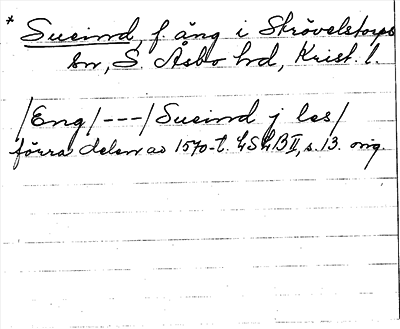 * Sueind, f. äng i Skrövelstorps
sn, S. Åsbo hd, Krist. l.
/Eng/---/Sueind j les/
förra delen av 1570-t. LSLB II, s. 13. orig.